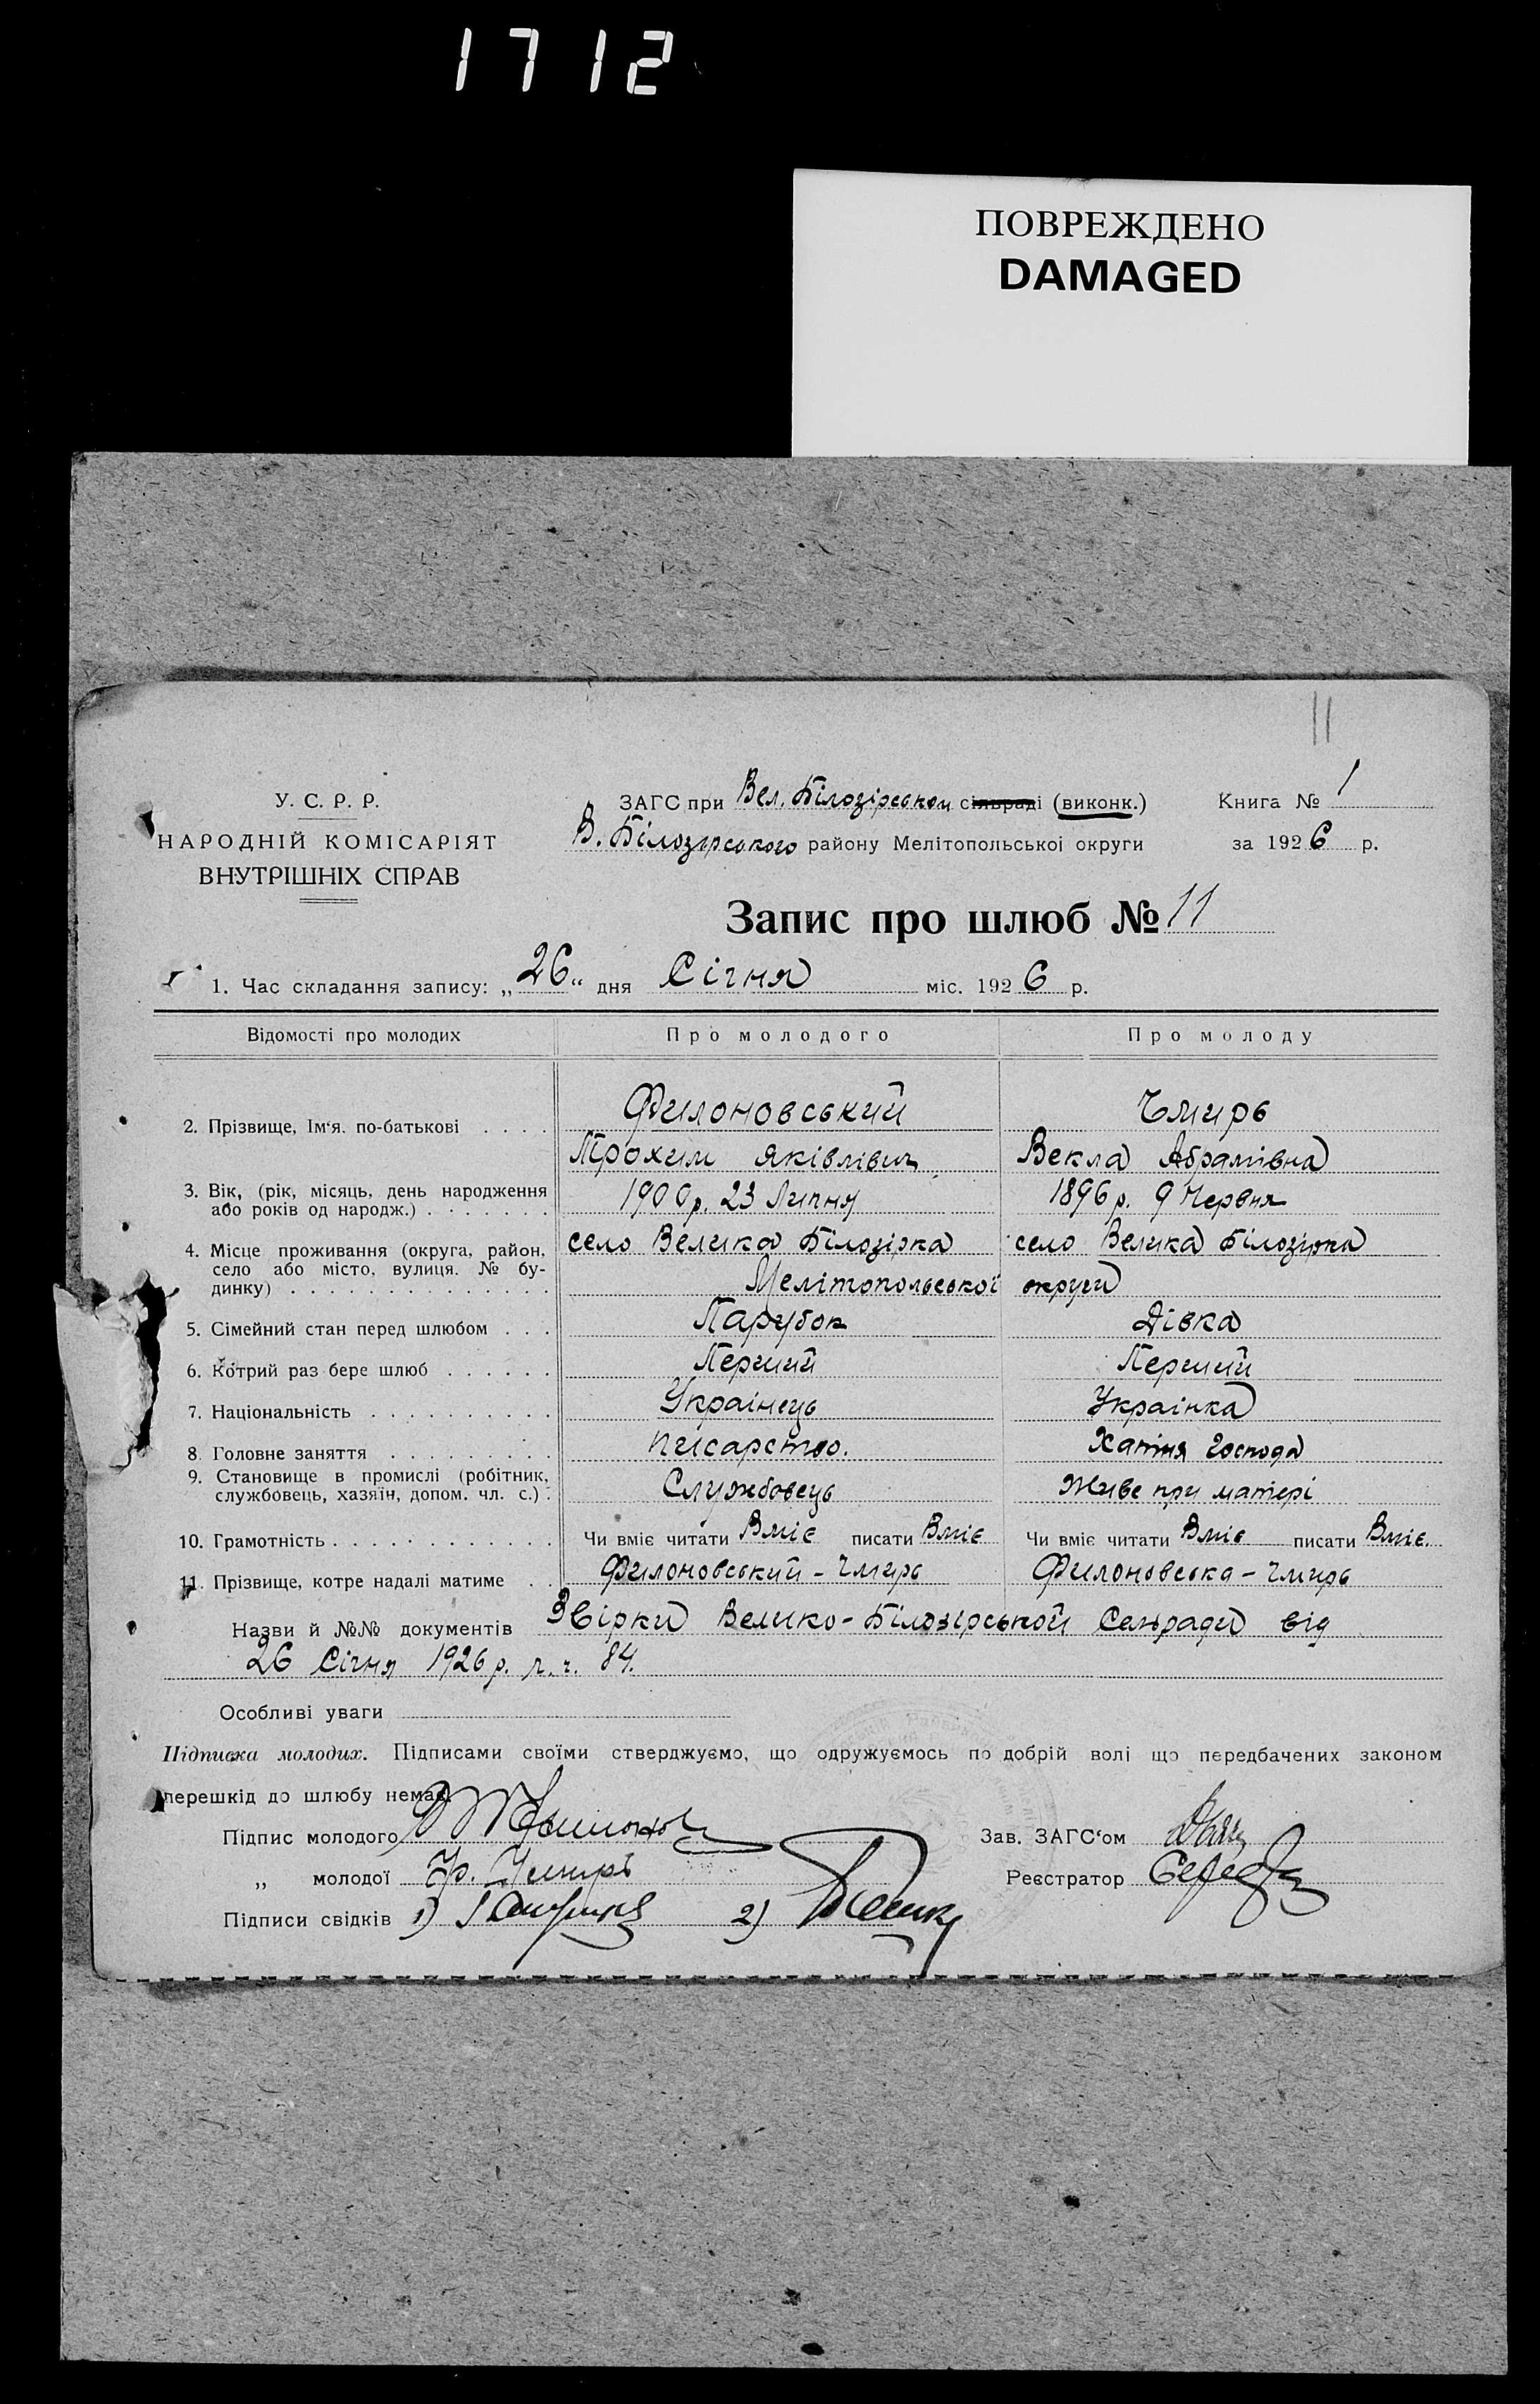 1712
ПОВРЕЖДЕНО
DAMAGED
11
У. С. Р. Р.
НАРОДНІЙ КОМІСАРІЯТ
ВНУТРІШНІХ СПРАВ
ЗАГС при Вел. Білозірськом сільраді (виконк.)
В. Білозірського району Мелітопольської округи
Книга № 1
за 1926 р.
Запис про шлюб № 11
1. Час складання запису: „26“ дня Січня міс. 1926 р.
Відомості про молодих Про молодого Про молоду
2. Прізвище, Ім‘я, по-батькові . . . . Филоновський Чмирь
Трохим Яківлівич Векла Абрамівна
3. Вік, (рік, місяць, день народження
або років од народж.) . . . . . . 1900 р. 23 Липня 1896 р. 9 Червня
4. Місце проживання (округа, район,
село або місто, вулиця. № бу-
динку) . . . . . . . . . . . . . .
село Велика Білозірка село Велика Білозірка
Мелітопольської округи
5. Сімейний стан перед шлюбом . . . Парубок Дівка
6. Котрий раз бере шлюб . . . . . . Перший Перший
7. Національність . . . . . . . . . . Українець Українка
8. Головне заняття . . . . . . . . . Писарство. Хатня господа
9. Становище в промислі (робітник,
службовець, хазяїн, допом. чл. с.) . Службовець Живе при матері
10. Грамотність . . . . . . . . . . . . Чи вміє читати Вміє писати Вміє Чи вміє читати Вміє писати Вміє
11. Прізвище, котре надалі матиме . . Филоновський - Чмирь Филоновська - Чмирь
Назви й №№ документів Звірки Велико-Білозірської Сельради від
26 Січня 1926 р. л. ч. 84.
Особливі уваги
Підписка молодих. Підписами своїми стверджуємо, що одружуємось по добрій волі що передбачених законом
перешкід до шлюбу немає.
Підпис молодого
„ молодої Чмирь
Підписи свідків 1) 2)
Зав. ЗАГС‘ом
Реєстратор